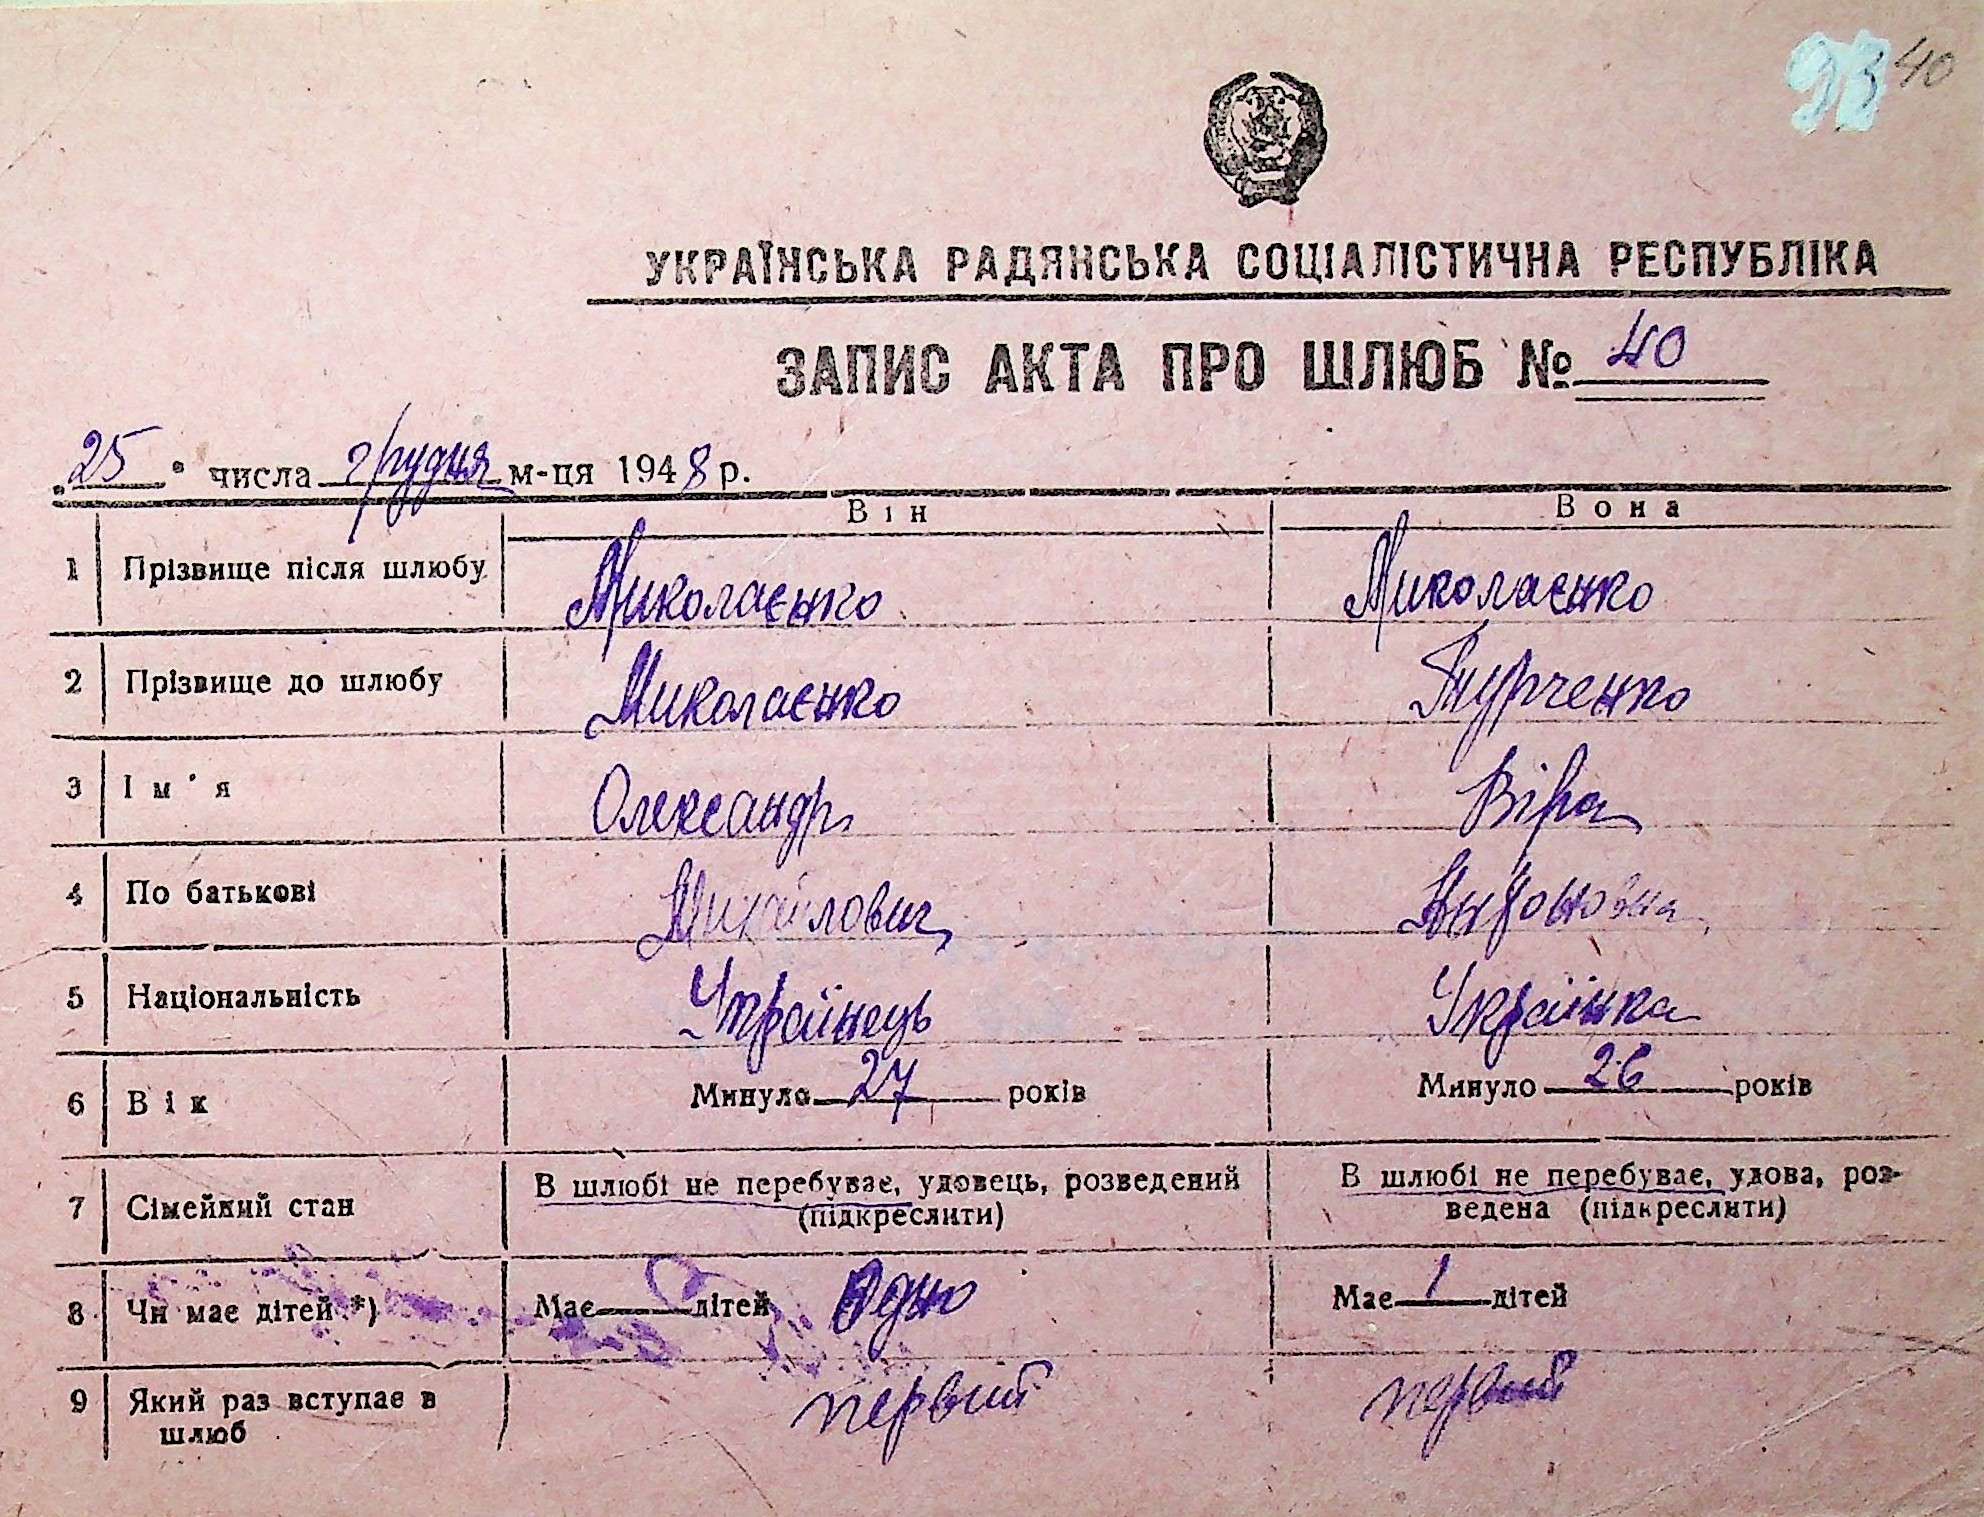 40
УКРАЇНСЬКА РАДЯНСЬКА СОЦІАЛІСТИЧНА РЕСПУБЛІКА
ЗАПИС АКТА ПРО ШЛЮБ № 40
„25" числа грудня м-ця 1948 р.
Він Вона
1 Прізвище після шлюбу Миколаєнко Миколаєнко
2 Прізвище до шлюбу Миколаєнко Турченко
3 Ім'я Олександр Віра
4 По батькові Михайлович
5 Національність Українець Українка
6 Вік Минуло 27 років Минуло 26 років
7 Сімейний стан В шлюбі не перебуває, удовець, розведений В шлюбі не перебуває, удова, роз-
(підкреслити) ведена (підкреслити)
8 Чи має дітей *) Має дітей Одно Має 1 дітей
9 Який раз вступає в первий первий
шлюб